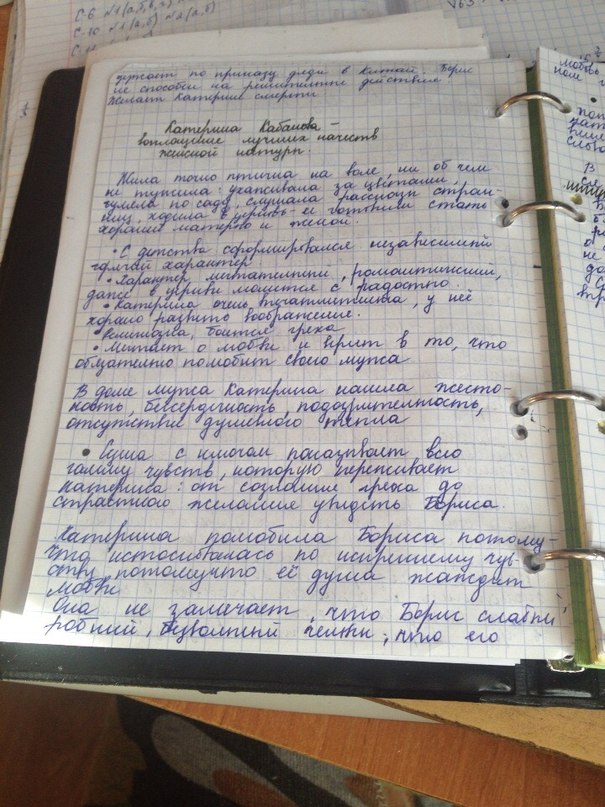 С-6 №1(а,б,в,г)
С-10 №1(а,б) №2(а,б)
уезжает по приказу дяди в Китай. Борис
не способен на решительные действия
желает Катерине смерти.
Катерина Кабанова –
воплощение лучших качеств
женской натуры.
Жила точно птичка на воле, ни об чем
не тужила: ухаживала за цветами,
гуляла по саду, слушала рассказы стран-
ниц, ходила в церковь - ее готовили стать
хорошей матерью и женой.
• С детства сформировался независимый
горячий характер
• Характер мечтательный, романтический,
даже в церкви молится с радостью.
• Катерина очень впечатлительна, у неё
хорошо развито воображение.
• Религиозна, боится греха
• Мечтает о любви и верит в то, что
обязательно полюбит своего мужа
В доме мужа Катерина нашла жесто-
кость, бессердечность, подозрительность,
отсутствие душевного тепла
• Сцена с ключом показывает всю
гамму чувств, которую переживает
Катерина: от сознания греха до
страстного желания увидеть Бориса.
Катерина полюбила Бориса потому-
что истосковалась по искреннему чув-
ству, потомучто её душа жаждет
любви
Она не замечает, что Борис слабый,
робкий, безвольный человек, что его